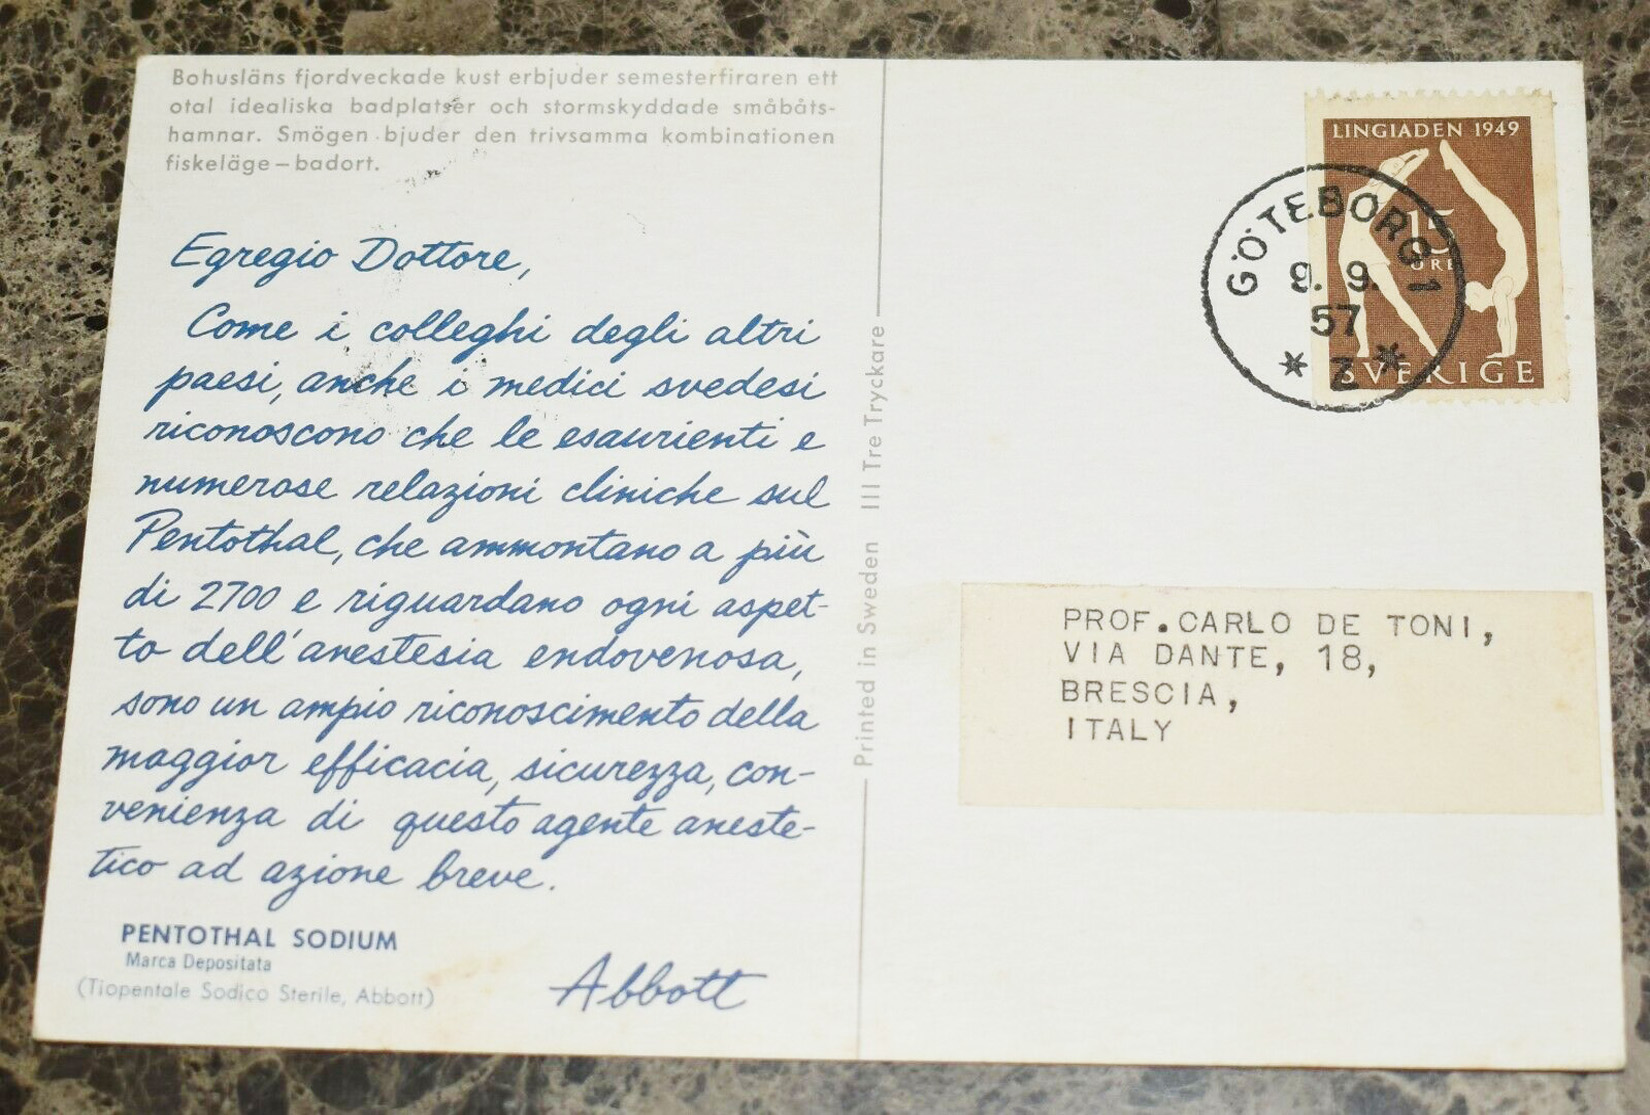 Bohusläns fjordveckade kust erbjuder semesterfiraren ett
otal idealiska badplatser och stormskyddade småbåts-
hamnar. Smögen bjuder den trivsamma kombinationen
fiskeläge–badort.
Egregio Dottore,
Come i colleghi degli altri
paesi, anche i medici svedesi
riconoscono che le esaurienti e
numerose relazioni cliniche sul
Pentothal, che ammontano a più
di 2700 e riguardano ogni aspet-
to dell'anestesia endovenosa,
sono un ampio riconoscimento della
maggior efficacia, sicurezza, con-
venienza di questo agente aneste-
tico ad azione breve.
PENTOTHAL SODIUM
Marca Depositata
(Tiopentale Sodico Sterile, Abbott)
Abbott
Printed in Sweden III Tre Tryckare
LINGIADEN 1949
15
ÖRE
SVERIGE
GÖTEBORG 1
9. 9.
57
* Z *
PROF.CARLO DE TONI,
VIA DANTE, 18,
BRESCIA,
ITALY